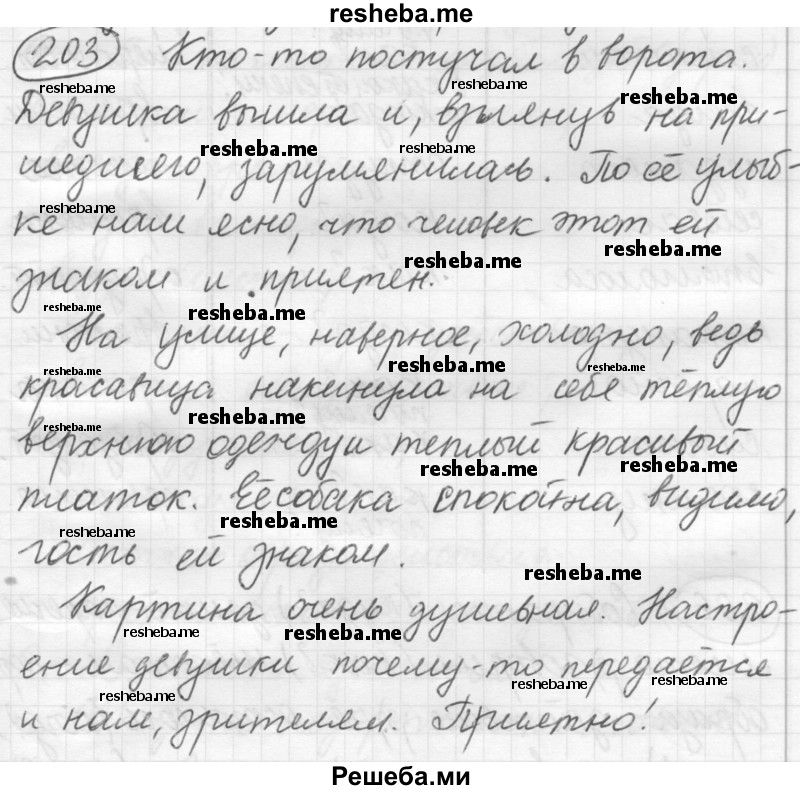 resheba.me
203 Кто-то постучал в ворота.
resheba.me resheba.me resheba.me
Девушка вышла и, взглянув на при-
resheba.me resheba.me
шедшего, зарумянилась. По её улыб-
resheba.me
ке нам ясно, что человек этот ей
resheba.me resheba.me
знаком и приятен.
resheba.me resheba.me
На улице, наверное, холодно, ведь
resheba.me resheba.me
красавица накинула на себя тёплую
resheba.me resheba.me
верхнюю одежду и теплый красивый
resheba.me resheba.me
платок. Её собака спокойна, видимо,
resheba.me resheba.me
гость ей знаком.
resheba.me
Картина очень душевная. Настро-
resheba.me resheba.me
ение девушки почему-то передаётся
resheba.me resheba.me resheba.me
и нам, зрителям. Приятно!
Решеба.ми